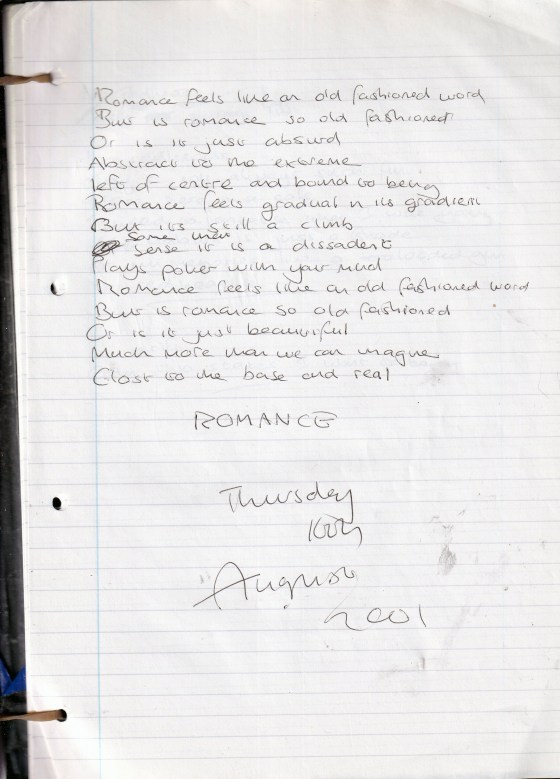 Romance feels like an old fashioned word
But is romance so old fashioned
Or is it just absurd
Abstract to the extreme
left of centre and bound to being
Romance feels gradual in its gradient
But its still a climb
Some
sense it is a dissadent
Plays poker with your mind
Romance feels like an old fashioned word
But is romance so old fashioned
Or is it just beautiful
Much more than we can imagine
Close to the base and real
ROMANCE
Thursday
August
2001